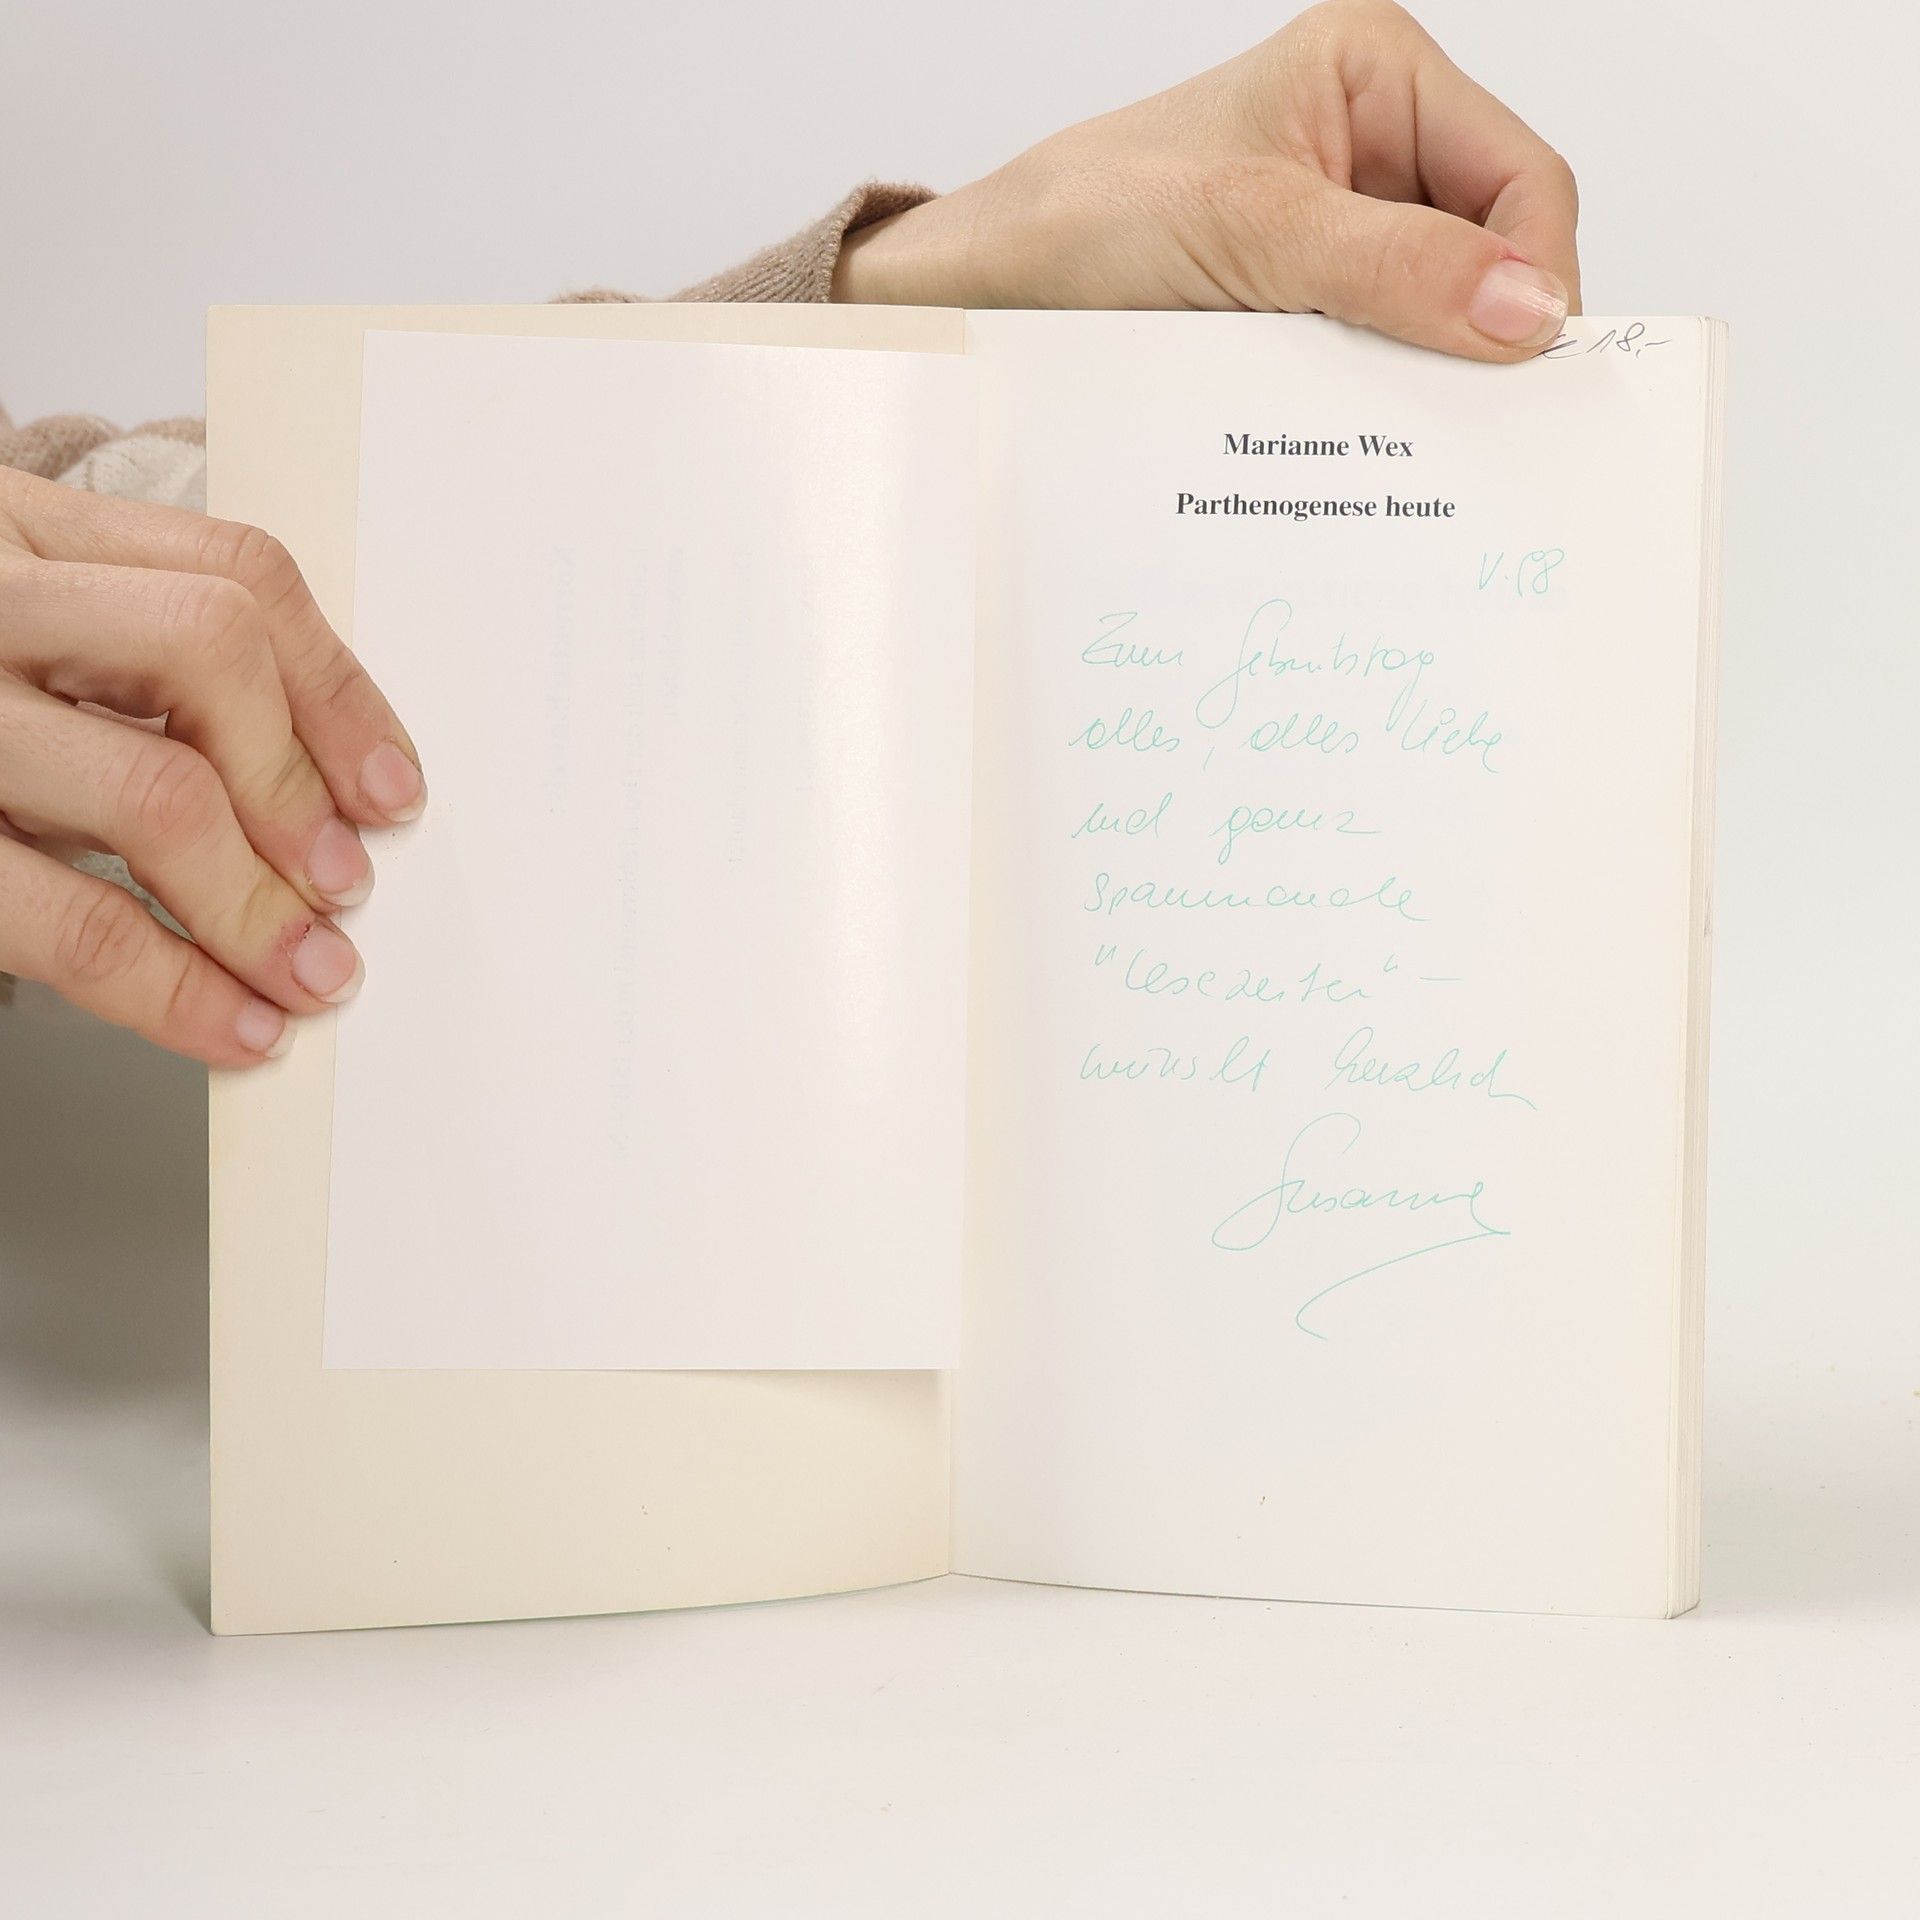 € 18,-
Marianne Wex
Parthenogenese heute
Zum Geburtstag
alles, alles Liebe
und ganz
spannende
"Lesezeiten" -
wünscht herzlich
Susanne